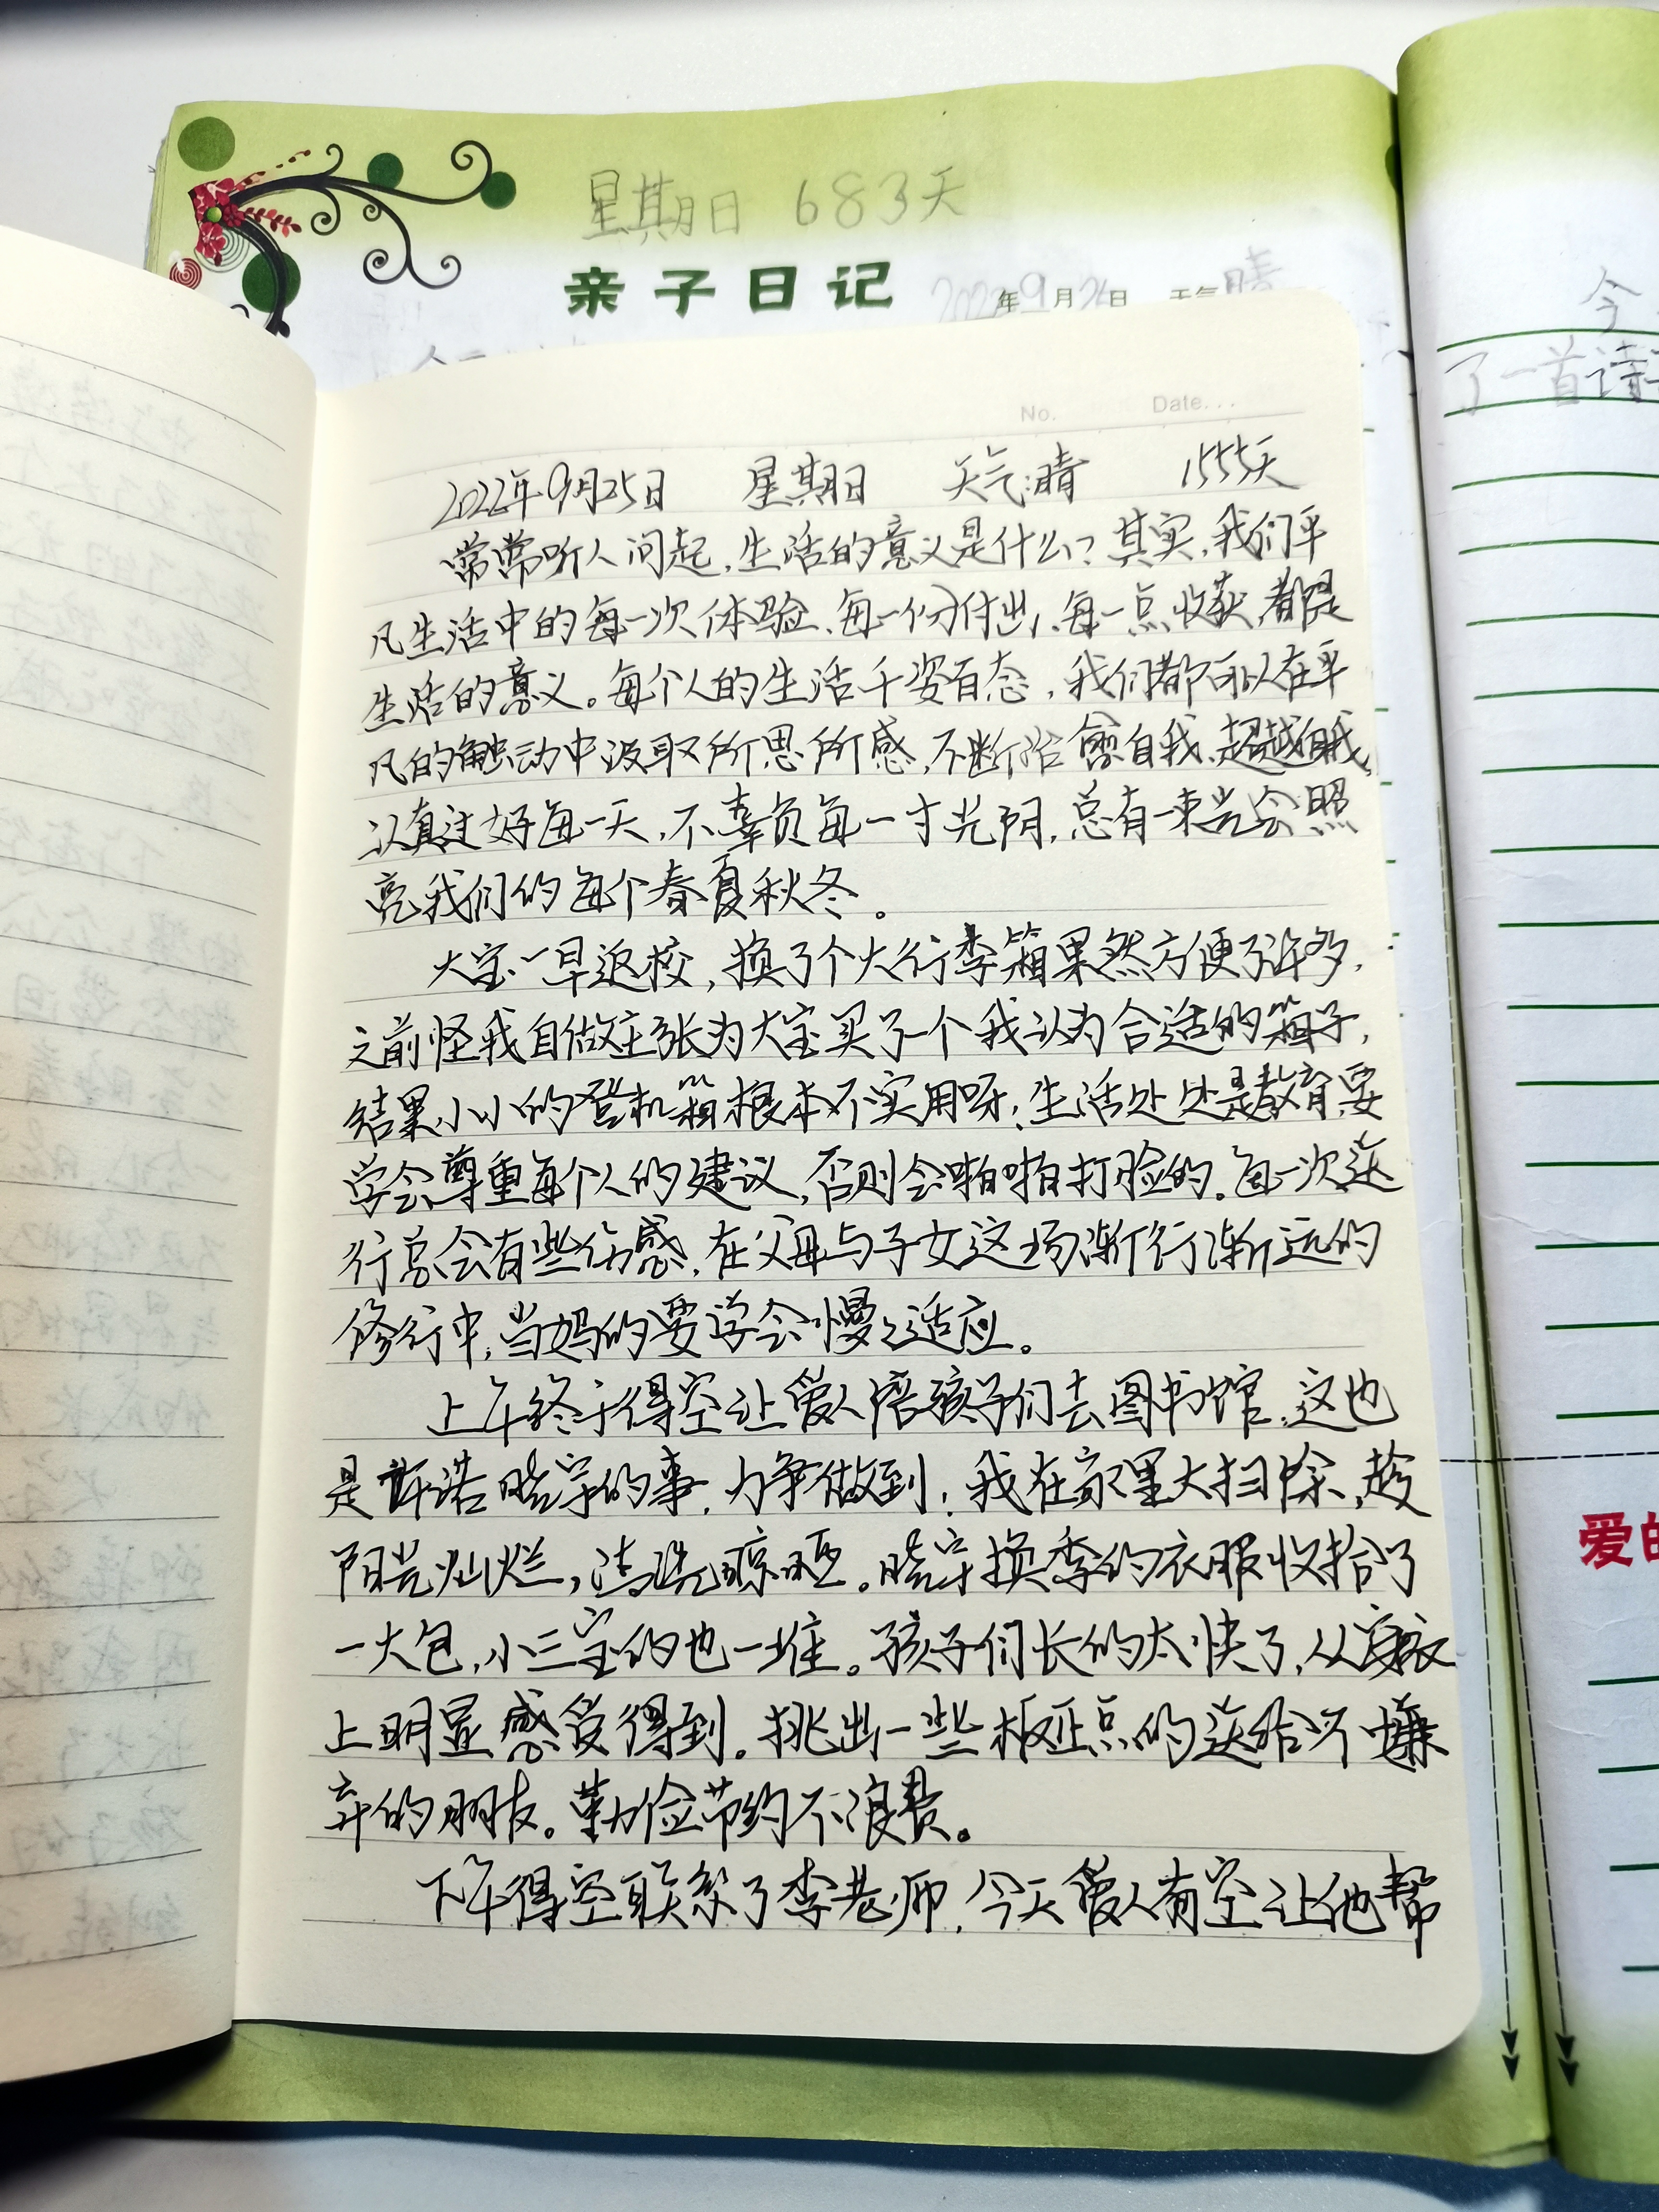 星期日 683天
亲子日记 2022年9月26日 天气晴
No. Date...
2022年9月25日 星期日 天气:晴 1555天
常常听人问起,生活的意义是什么?其实,我们平
凡生活中的每一次体验、每一份付出、每一点收获,都是
生活的意义。每个人的生活千姿百态,我们都可以在平
凡的触动中汲取所思所感,不断治愈自我、超越自我,
认真过好每一天,不辜负每一寸光阴,总有一束光会照
亮我们的每个春夏秋冬。
大宝一早返校,换了个大行李箱果然方便了许多,
之前怪我自做主张为大宝买了一个我认为合适的箱子,
结果小小的登机箱根本不实用呀!生活处处是教育,要
学会尊重每个人的建议,否则会啪啪打脸的。每一次送
行总会有些伤感,在父母与子女这场渐行渐远的
修行中,当妈的要学会慢慢适应。
上午终于得空让爱人陪孩子们去图书馆,这也
是许诺晓宇的事,力争做到!我在家里大扫除,趁
阳光灿烂,清洗晾晒。晓宇换季的衣服收拾了
一大包,小三宝的也一堆。孩子们长的太快了,从穿衣
上明显感受得到。挑出一些板正点的送给不嫌
弃的朋友。勤俭节约不浪费。
下午得空联系了李老师,今天爱人有空让他帮
今
了一首诗
爱的